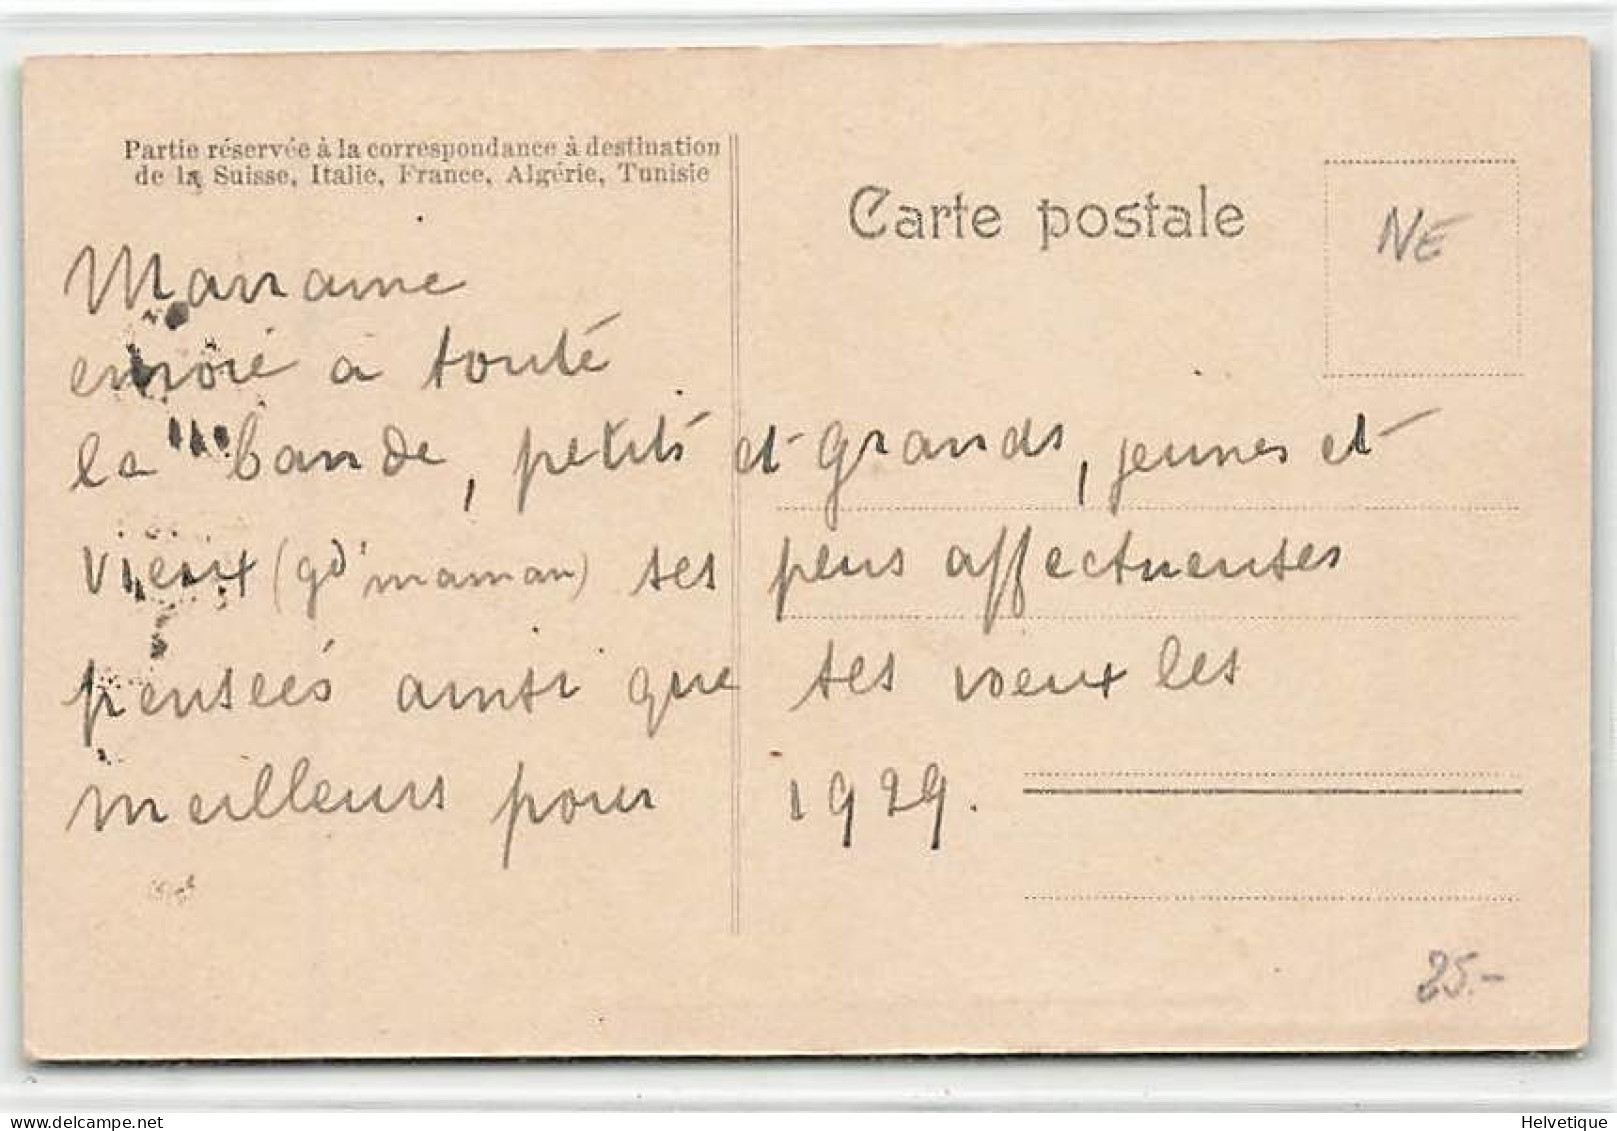 Partie réservée à la correspondance à destination
de la Suisse, Italie, France, Algérie, Tunisie
Carte postale
NE
envoie a touté
la bande, petits et grands, jeunes et
vieux (gd' maman) ses plus affectueuses
penseés ainsi que ses voeux les
meilleurs pour 1929.
25.-
Helvetique